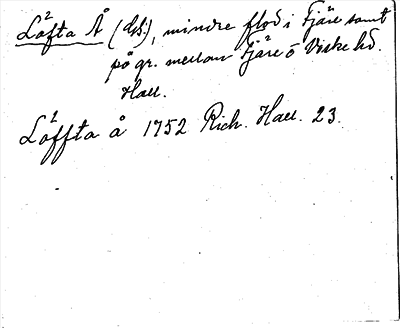 Lö²fta Å (ds.), mindre flod i Fjäre samt
på gr. mellan Fjäre o Viske hd.
Hall.
Löffta å 1752 Rich. Hall. 23.